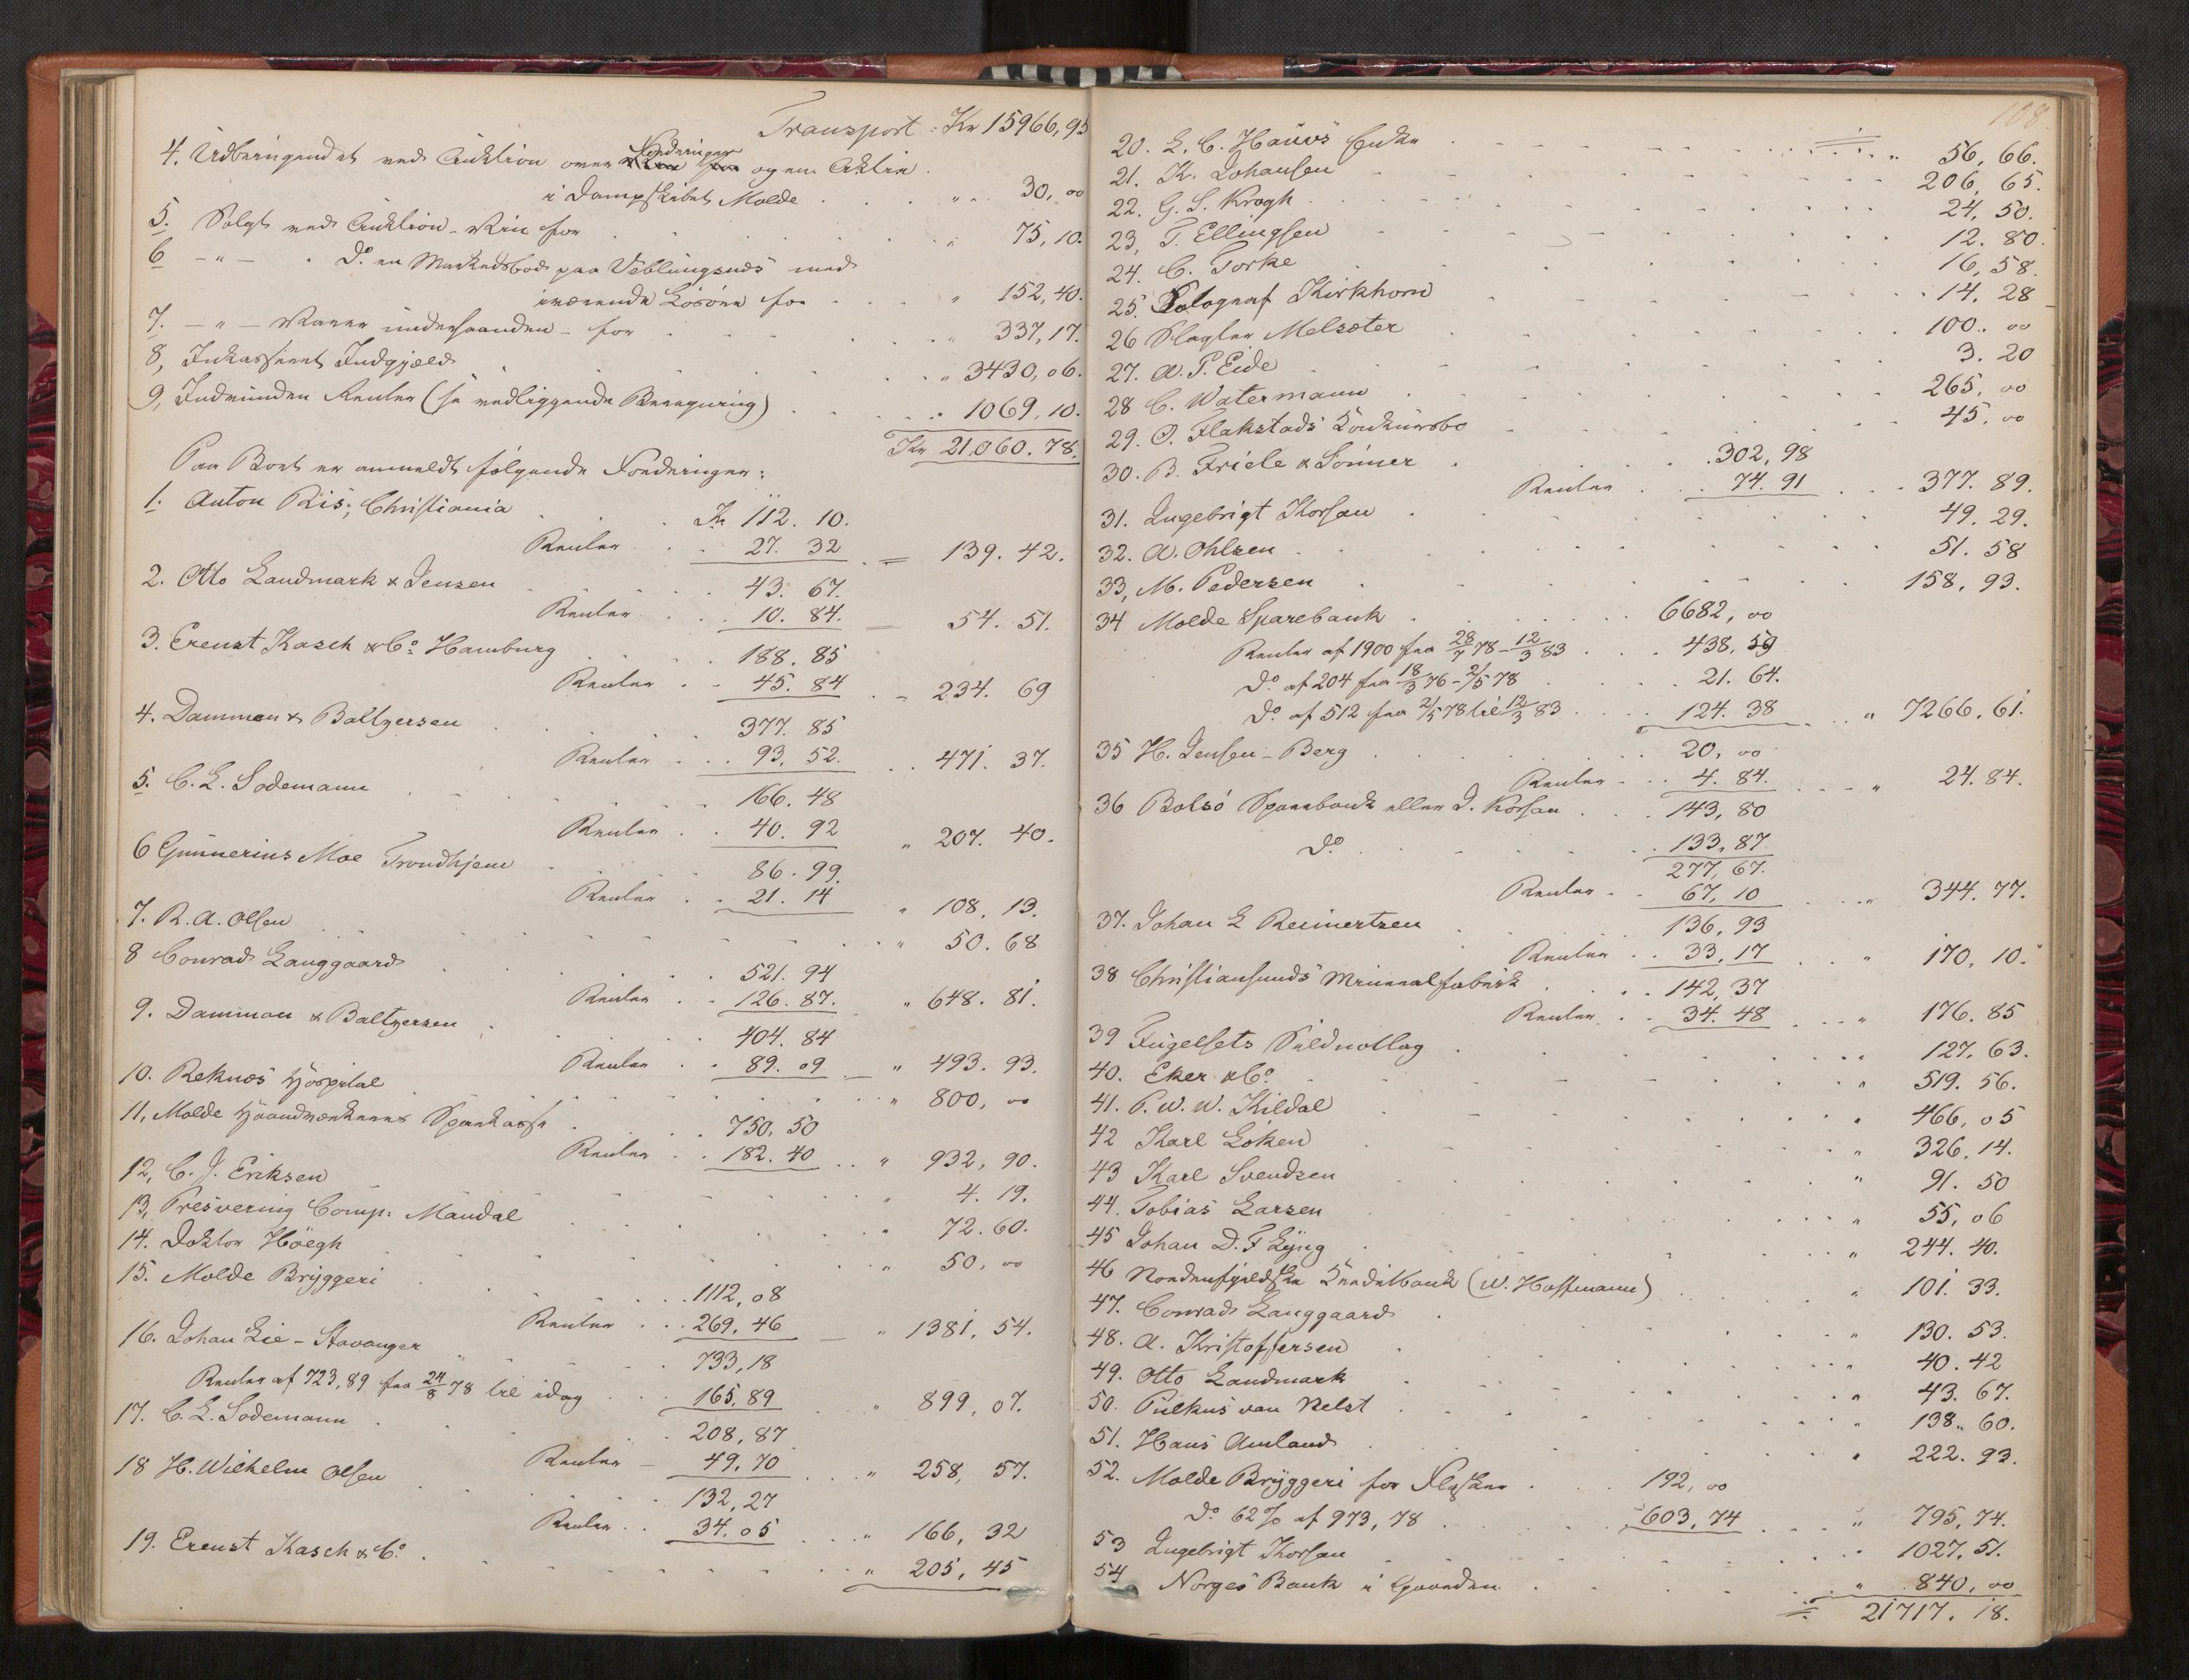 Transport: Kr 15966,95
4. Udbringendet ved Auktion over Fordringer og en Aktie
i Dampskibet Molde . . . „ 30,00
5. Solgt ved Auktion - Vin for . . . „ 75,10.
6 -„- „ Do. en Markedsbod paa Veblungsnæs med
iværende Løsøre for . . . „ 152,40.
7. -„- Varer underhaanden - for . . . „ 337,17.
8, Inkasseret Indgjæld . . . „ 3430,06.
9, Indvunden Renter (se vedliggende Beregning) . . . „ 1069,10.
Kr 21,060.78.
Paa Boet er anmeldt følgende Fordringer:
1. Anton Ris, Christiania . . . Kr 112. 10.
Renter . . 27. 32 = 139. 42.
2. Otto Landmark & Jensen . . . 43. 67.
Renter . . 10. 84. = 54. 51.
3. Ernst Kasch & Co. Hamburg . . . 188. 85
Renter . . 45. 84 . = 234. 69
4. Damman & Baltzersen . . . 377. 85
Renter . . . 93, 52. . . 471. 37.
5. C. L. Sodemann . . . 166. 48
Renter . . 40. 92 „ 207. 40.
6 Gunnerius Moe Trondhjem . . . 86. 99.
Renter . . 21. 14 „ 108, 13.
7. R. A. Olsen . . . „ 50. 68
8 Conrad Langgaard . . . 521. 94
Renter . . 126. 87. „ 648. 81.
9. Damman & Baltzersen . . . 404. 84
Renter . . 89. 09 — „ 493. 93.
10. Reknæs Hospital . . . „ 800, 00
11, Molde Haandværkeres Sparekasse . . . 750, 50
Renter . . 182. 40 . . „ 932, 90.
12, C. J. Eriksen . . . „ 4. 19.
13, Preserving Comp: Mandal . . . „ 72. 60.
14. Doktor Höegh . . . „ 50, 00
15. Molde Bryggeri . . . 1112, 08
Renter . . . 269, 46 — „ 1381, 54.
16. Johan Lie - Stavanger . . . 733, 18
Renter af 723,89 fra 24/8 78 til idag . . . 165, 89 . . „ 899, 07.
17. C. L. Sodemann . . . 208, 87
Renter — 49, 70 . . . „ 258, 57.
18 H. Wilhelm Olsen . . . 132, 27
Renter . . 34. 05 . . „ 166, 32
19. Ernst Kasch & Co. . . . „ 205, 45
108
20. L. C. Hauvs Enke . . . „ 56, 66.
21. K. Johansen . . . 206, 65.
22. G. S. Krogh . . . 24, 50.
23, T. Ellingsen . . . 12. 80.
24. C. Torke . . . 16, 58.
25. Fotograf Kirkhorn . . . 14, 28
26 Slagter Melsæter . . . 100.. 00
27. A. P. Eide . . . 3. 20
28 C. Watermann . . . 265, 00
29. O. Flakstads Konkursbo . . . 45, 00
30. B. Friele & Sönner . . . 302, 98
Renter . . . 74. 91 . . . 377. 89.
31. Ingebrigt Korsan . . . 49. 29.
32. A. Ohlsen . . . 51. 58
33, M. Pedersen . . . 158, 93.
34 Molde Sparebank . . . 6682, 00
Renter af 1900 fra 28/7 78 - 12/3 83 . . . 438, 59
Do. af 204 fra 18/3 76 - 2/5 78 . . . 21. 64.
Do. af 512 fra 2/5 78 til 12/3 83 . . . 124. 38 . . . „ 7266, 61.
35 H. Jensen - Berg . . . 20, 00
Renter . . 4. 84. . . . „ 24. 84.
36 Bolsö Sparebank eller I. Korsan . . . 143, 80
Do. . . . 133, 87.
277, 67.
Renter . . 67, 10 . . . „ 344. 77.
37. Johan L Reinertzen . . . 136, 93
Renter . . 33, 17 . . . „ 170, 10.
38 Christiansunds Mineralfabrik . . . 142, 37
Renter . . 34. 48 . . . „ 176. 85
39 Fugelsets Sildnotlag . . . „ 127, 63.
40. Eker & Co. . . . „ 519. 56.
41. P. W. W. Kildal . . . „ 466, 05
42 Karl Löken . . . „ 326, 14.
43 Karl Svendsen . . . „ 91. 50
44. Tobias Larsen . . . „ 55, 06
45 Johan D. F Lyng . . . „ 244. 40.
46 Nordenfjeldske Kreditbank (W. Hoffmann) . . . „ 101. 33.
47. Conrad Langgaard . . . „ 130. 53.
48. A. Kristoffersen . . . „ 40. 42
49. Otto Landmark . . . „ 43. 67.
50. Pulkus van Nelst . . . „ 138. 60.
51. Hans Amland . . . „ 222. 93.
52. Molde Bryggeri for Flasker . . . 192, 00
Do. 62% af 973, 78 . . . 603, 74 . . . „ 795, 74.
53 Ingebrigt Korsan . . . 1027, 51.
54 Norges Bank i Gaarden . . . „ 840, 00
21717, 18.